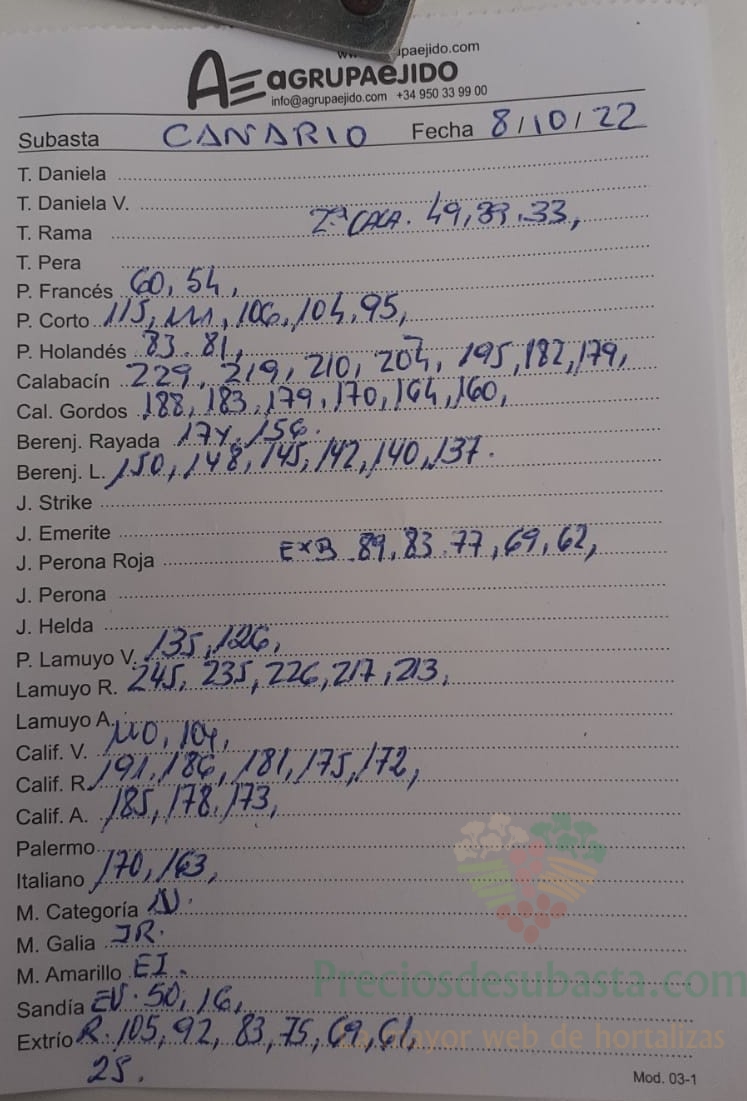 ipaejido.com
AE aGRUPAeJIDO
info@agrupaejido.com +34 950 33 99 00
Subasta CANARIO Fecha 8/10/22
T. Daniela
T. Daniela V.
T. Rama 2ª CACA. 49, 39, 33,
T. Pera
P. Francés 60, 54,
P. Corto 115, 111, 106, 104, 95,
P. Holandés 83. 81,
Calabacín 229, 219, 210, 204, 195, 182, 179,
Cal. Gordos 188, 183, 179, 170, 164, 160,
Berenj. Rayada 174, 156.
Berenj. L. 150, 148, 145, 142, 140, 137.
J. Strike
J. Emerite
J. Perona Roja EXB 89, 83. 77, 69, 62,
J. Perona
J. Helda
P. Lamuyo V. 135, 126,
Lamuyo R. 245, 235, 226, 217, 213,
Lamuyo A.
Calif. V. 110, 104,
Calif. R. 191, 186, 181, 175, 172,
Calif. A. 185, 178, 173,
Palermo
Italiano 170, 163,
M. Categoría N.
M. Galia JR.
M. Amarillo EI.
Sandía EV. 50, 16,
Extrío R. 105, 92, 83, 75, 69, 61,
25.
Preciosdesubasta.com
La mayor web de hortalizas
Mod. 03-1